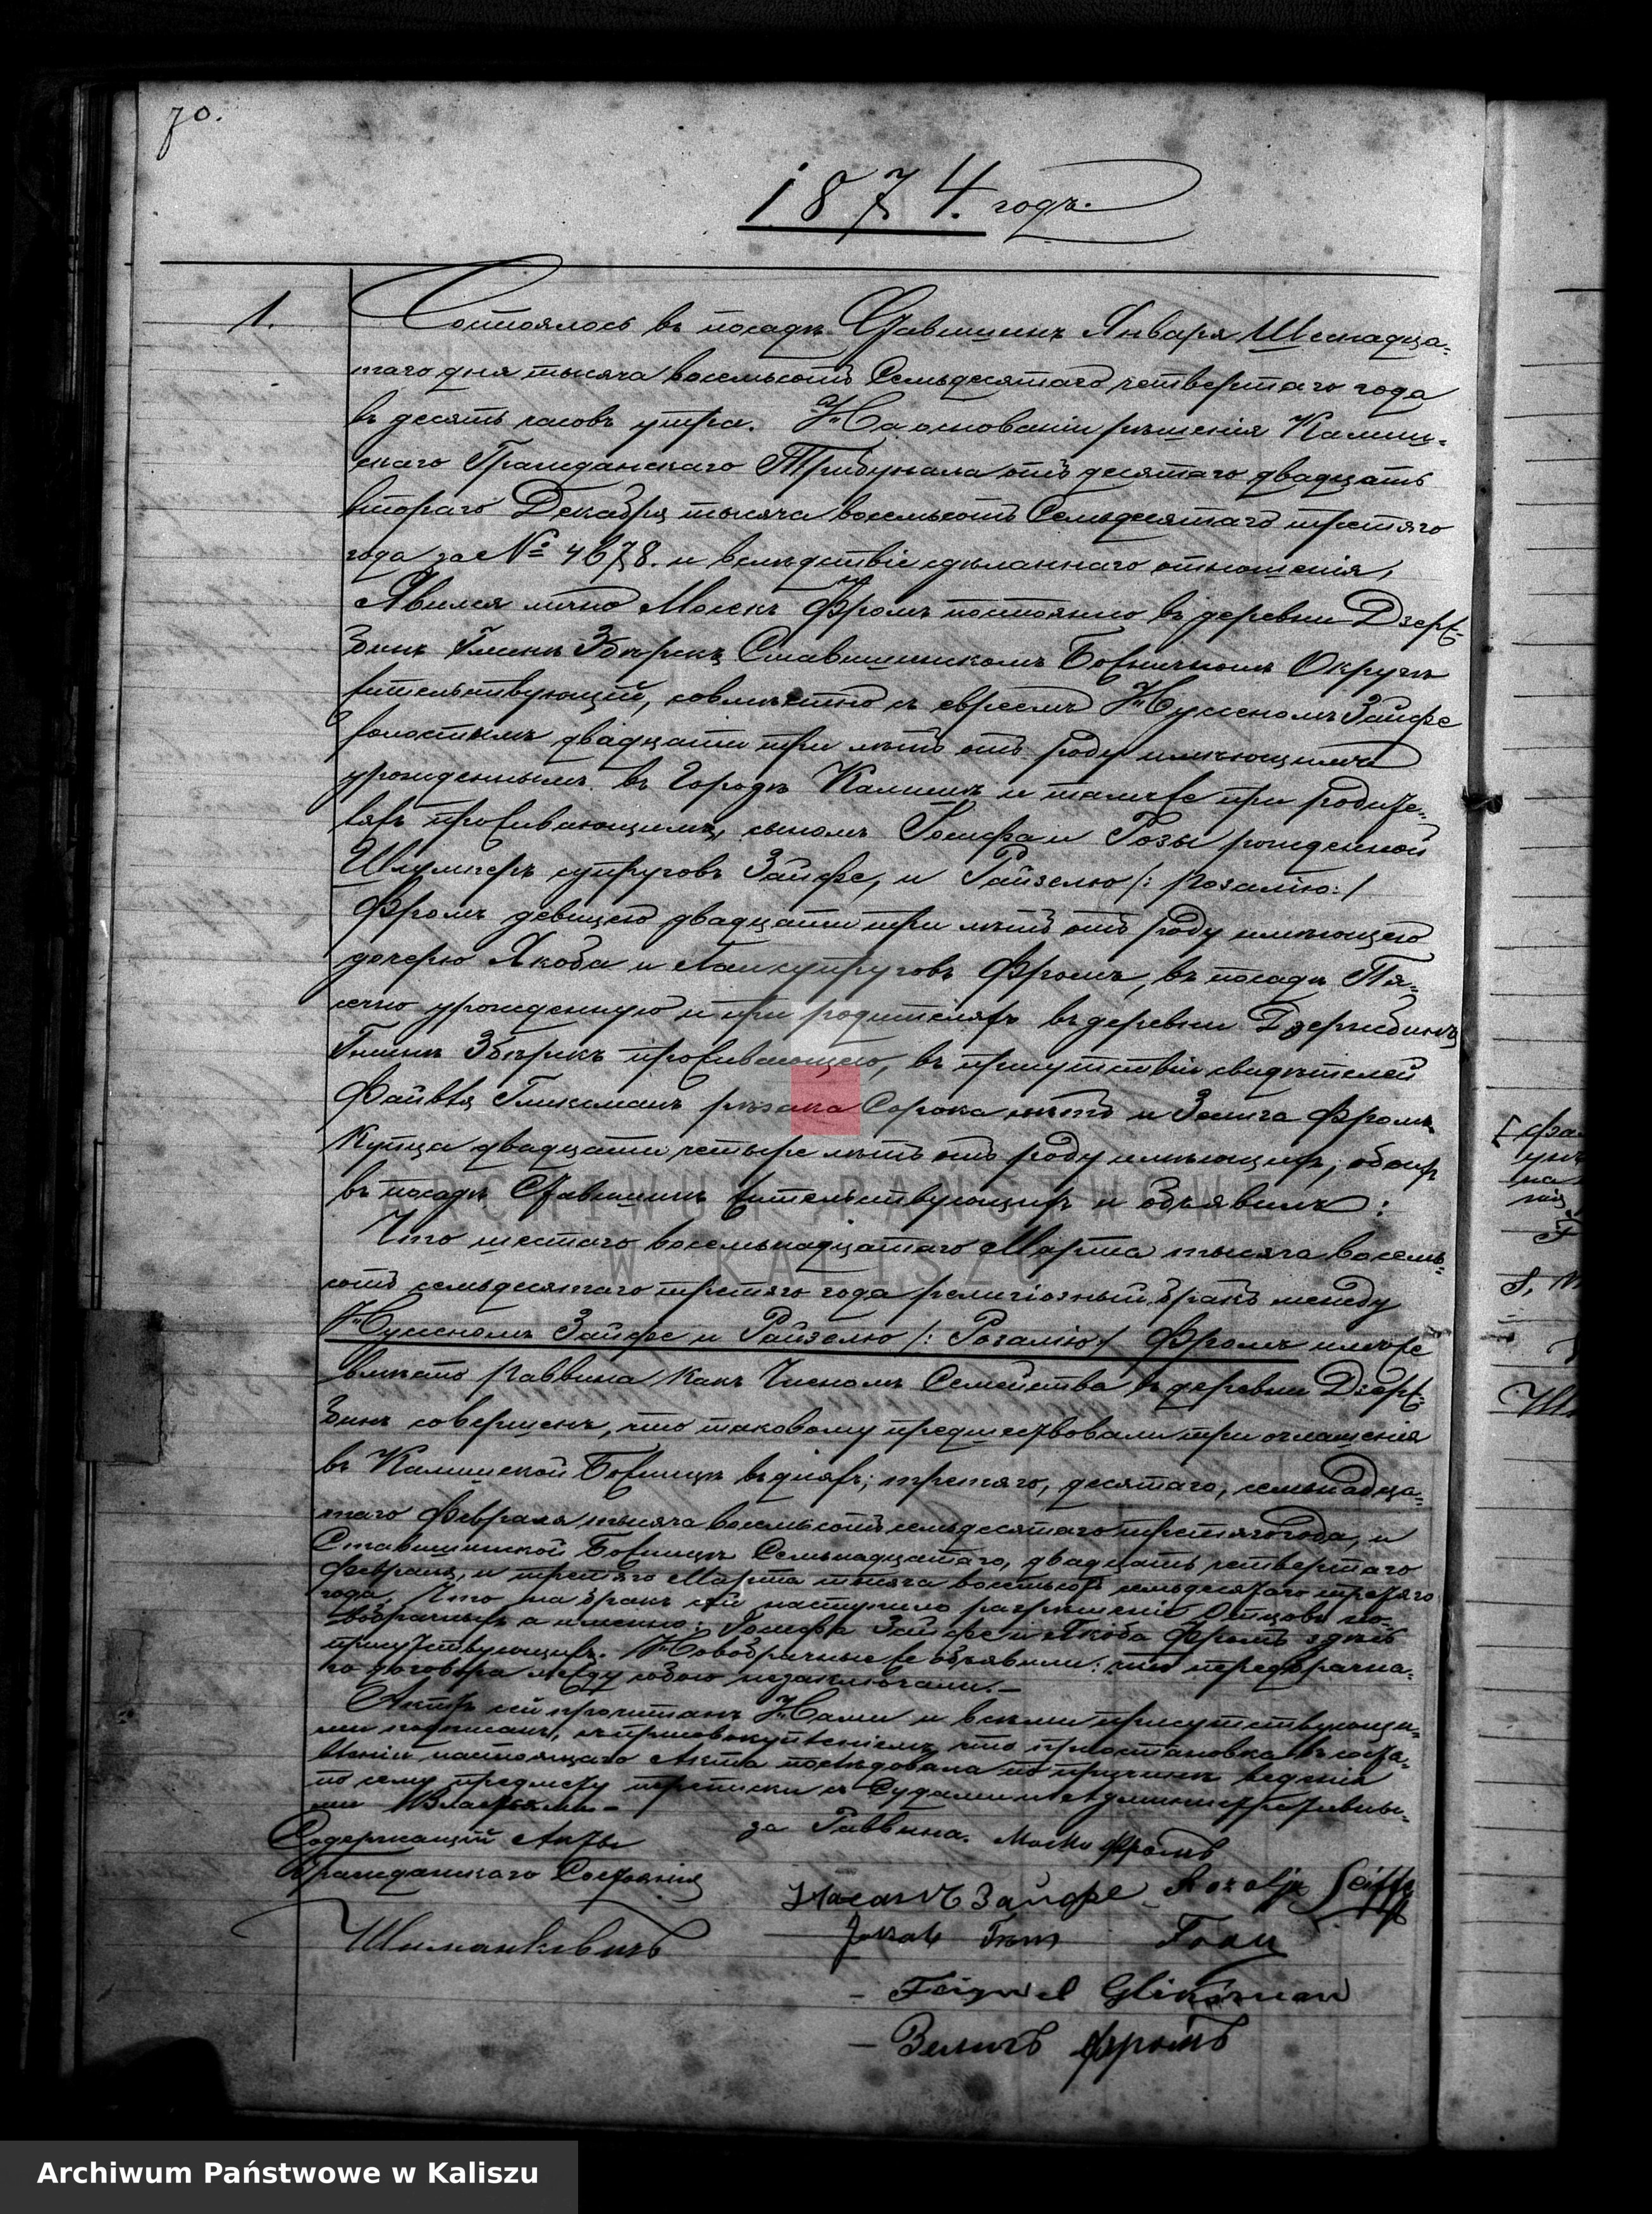 70.
1874. годъ.
1.
Состоялось въ посадѣ Ставишинѣ Января Шеснадца-
таго дня тысяча восемьсотъ Семьдесятаго четвертаго года
въ десять часовъ утра. На основаніи рѣшенія Калиш-
скаго Гражданскаго Трибунала отъ десятаго двадцать
втораго Декабря тысяча восемьсотъ Семьдесятаго третяго
года за № 4678. и вслѣдствіе сдѣланнаго отношенія,
Явился лично Мосекъ Фромъ постоянно въ деревни Дзерж-
бинъ Гмины Збѣрскъ Ставишинскомъ Божничномъ Округѣ
жительствующій, совмѣстно съ евреемъ Нуссеномъ Зайфе
холостымъ двадцати три лѣтъ отъ роду имѣющимъ
урожденнымъ въ Городѣ Калишѣ и тамже при родите-
ляхъ проживающимъ, сыномъ Іосифа и Розы рожденной
супруговъ Зайфе, и Райзелю /: Розалію :/
Фромъ девицею двадцати три лѣтъ отъ роду имѣющею
дочерю Якоба и супруговъ Фромъ, въ посадѣ Пя-
сечно урожденную и при родителяхъ въ деревни Дзержбинъ
Гмины Збѣрскъ проживающею, въ присутствіи свидѣтелей
Файвля Гликсманъ рѣзака Сорока лѣтъ и Зелига Фромъ
Купца двадцати четыре лѣтъ отъ роду имѣющихъ, обоихъ
въ посадѣ Ставишинѣ жительствующихъ и объявилъ:
Что шестаго восемьнадцатаго Марта тысяча восемь-
сотъ семьдесятаго третяго года религіозный бракъ между
Нуссеномъ Зайфе и Райзелю /: Розалію :/ Фромъ имже
вмѣсто Раввина какъ Членомъ Семейства въ деревни Дзерж-
бинъ совершенъ, что таковому предшествовали три оглашенія
въ Калишской Божницѣ въ дняхъ; третяго, десятаго, семьнадца-
таго Февраля тысяча восемьсотъ семьдесятаго третяго года, и
Ставишинской Божницѣ Семьнадцатаго, двадцать четвертаго
Февраля, и третяго Марта тысяча восемьсотъ семьдесятаго третяго
года. Что на бракъ сей наступило разрѣшеніе Отцовъ но-
вобрачныхъ а именно: Іосифа Зайфе и Якоба Фромъ здѣсь
присутствующихъ. Новобрачные же объявили: что передбрачна-
го договора между собою незаключали.—
Актъ сей прочитанъ Нами и всѣми присутствующи-
ми подписанъ, съ присовокупленіемъ что пріостановка въ соста-
вленіи настоящаго Акта послѣдовала по причинѣ веденія
по сему предмету переписки съ Судами и Административны-
ми Властями.—
Содержащій Акты
Гражданскаго Состоянія
за Раввина. Мосекъ Фромъ
Зайфе Rozalja Seiffe
Jakob From
Feiywel Gliksman
Зелигъ Фромъ
[фа
ARCHIWUM PAŃSTWOWE
W KALISZU
Archiwum Państwowe w Kaliszu